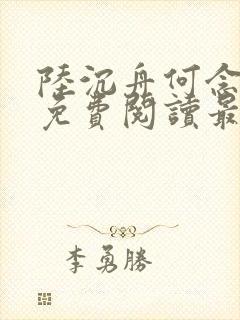 陸沉舟何念
免費閱讀最
李勇勝